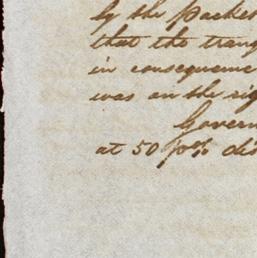 by the Packet
that the tranq
in consequence
was on the rig
Govern
at 50 p% dis